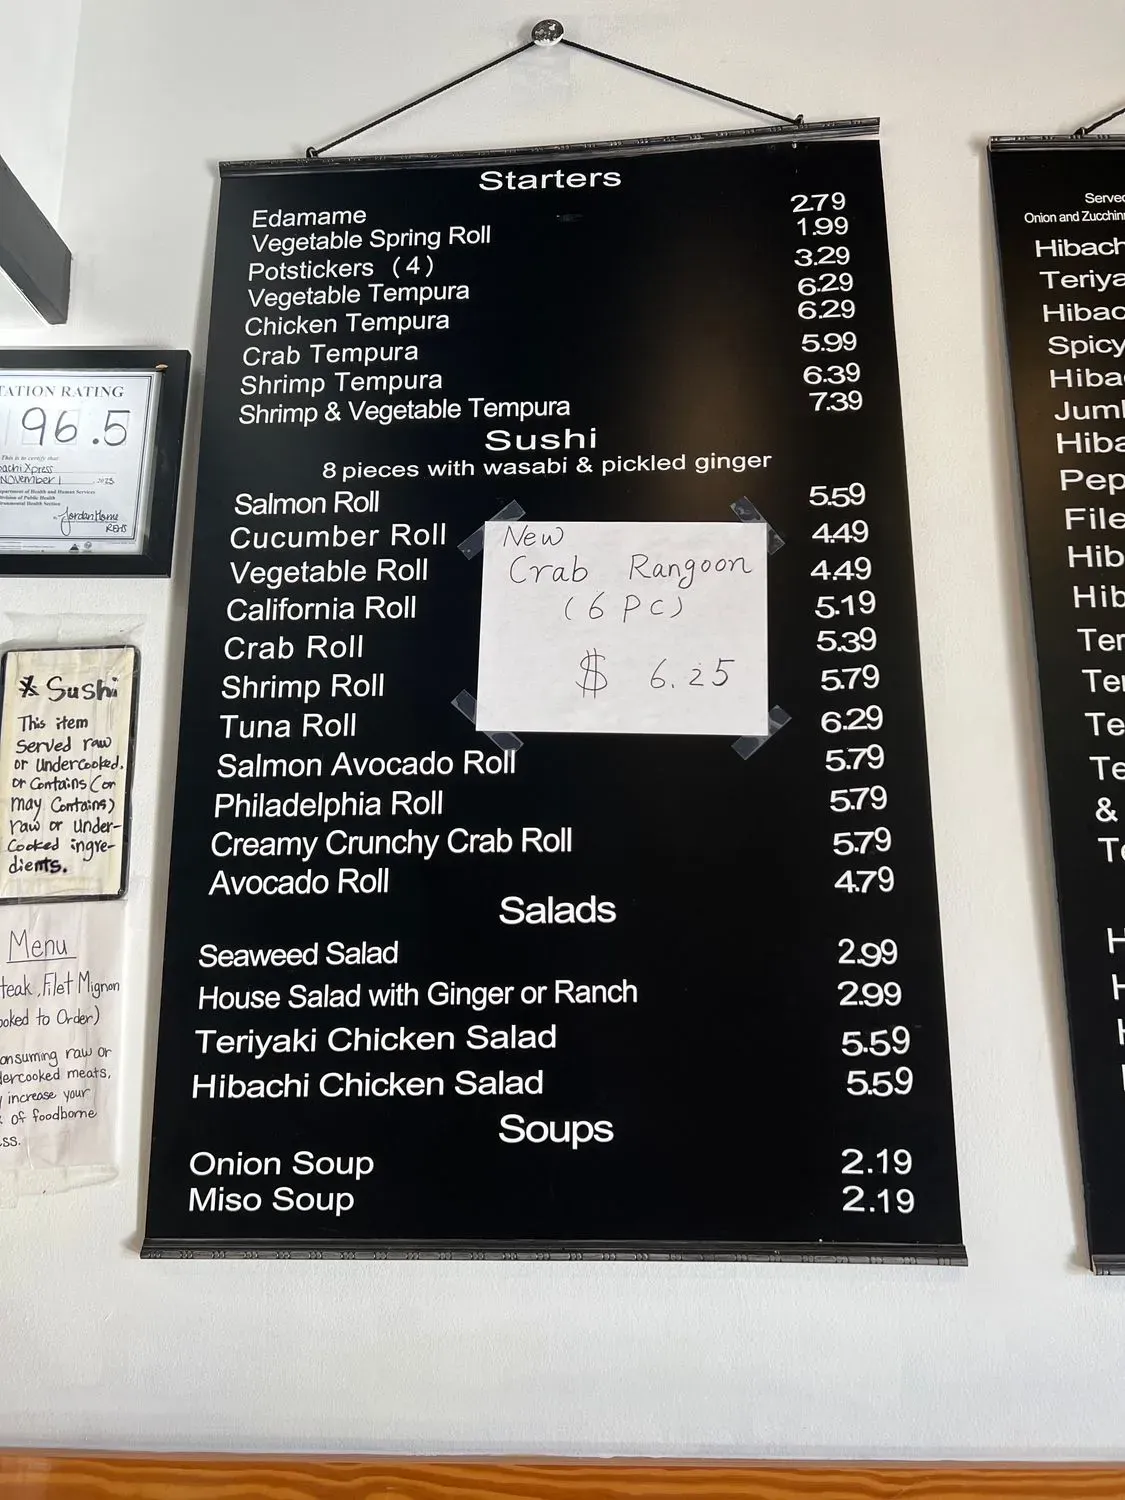 TATION RATING
96.5
This is to certify that
November 1
Jordan Horne
REHS
※ Sushi
This item
served raw
or undercooked.
or Contains (or
may Contains)
raw or under-
cooked ingre-
dients.
Menu
teak, Filet Mignon
ooked to Order)
onsuming raw or
dercooked meats,
increase your
of foodborne
ss.
Starters
Edamame 2.79
Vegetable Spring Roll 1.99
Potstickers (4) 3.29
Vegetable Tempura 6.29
Chicken Tempura 6.29
Crab Tempura 5.99
Shrimp Tempura 6.39
Shrimp & Vegetable Tempura 7.39
Sushi
8 pieces with wasabi & pickled ginger
Salmon Roll 5.59
Cucumber Roll 4.49
Vegetable Roll 4.49
California Roll 5.19
Crab Roll 5.39
Shrimp Roll 5.79
Tuna Roll 6.29
Salmon Avocado Roll 5.79
Philadelphia Roll 5.79
Creamy Crunchy Crab Roll 5.79
Avocado Roll 4.79
New
Crab Rangoon
(6 PC)
$ 6.25
Salads
Seaweed Salad 2.99
House Salad with Ginger or Ranch 2.99
Teriyaki Chicken Salad 5.59
Hibachi Chicken Salad 5.59
Soups
Onion Soup 2.19
Miso Soup 2.19
Served
Onion and Zucchin
Hibach
Teriya
Hibac
Spicy
Hiba
Jum
Hiba
Pep
File
Hib
Hib
Ter
Te
Te
Te
&
Te
H
H
H